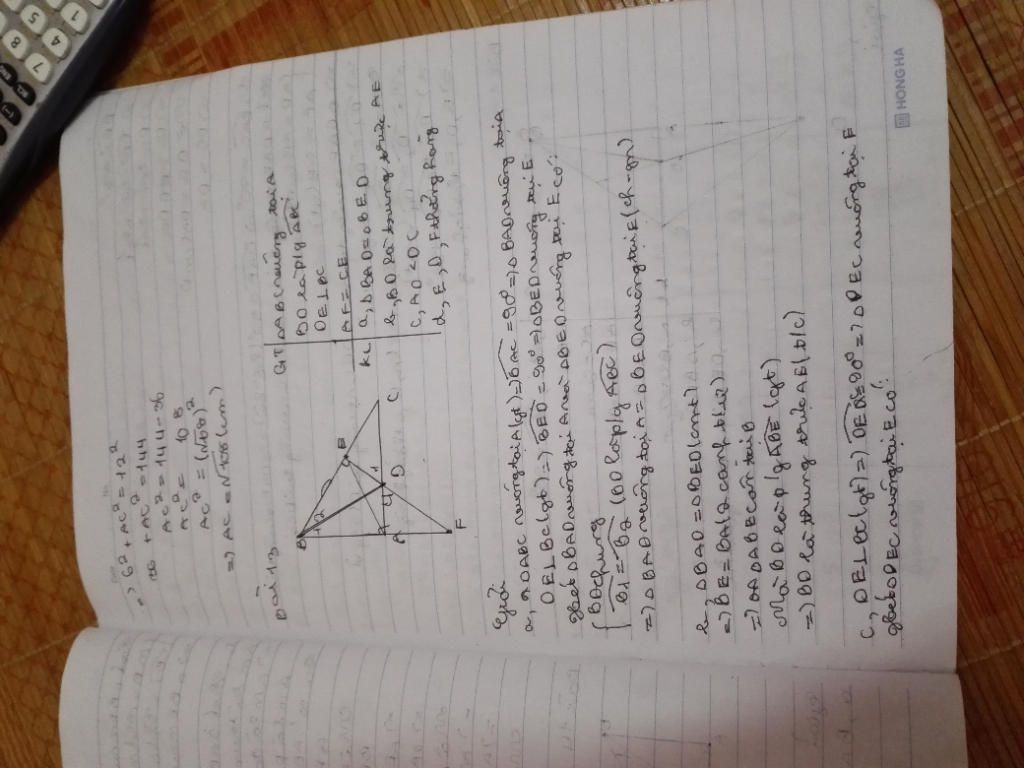 => 6² + AC² = 12²
+ AC² = 144
AC² = 144-36
AC² = 108
AC² = (√108)²
=> AC = √108 (cm)
Bài 13
B
E
C
A
D
F
1
2
GT ΔABC vuông tại A
BD là p/g ABC
DE⊥BC
AF = CE
KL a, ΔBAD = ΔBED
b, BD là trung trực AE
c, AD < DC
d, E, D, F thẳng hàng
Giải
a, ΔABC vuông tại A (gt) => BAC = 90° => ΔBAD vuông tại A
DE⊥BC (gt) => BED = 90° => ΔBED vuông tại E
Xét ΔBAD vuông tại A và ΔBED vuông tại E có:
BD chung
B1 = B2 (BD là p/g ABC)
=> ΔBAD vuông tại A = ΔBED vuông tại E (ch-gn)
b, ΔBAD = ΔBED (cmt)
=> BE = BA (2 cạnh t/ư)
=> ΔABE cân tại B
Mà BD là p/g ABE (gt)
=> BD là trung trực AE (t/c)
c, DE⊥BC (gt) => DEC = 90° => ΔDEC vuông tại E
Xét ΔDEC vuông tại E có:
HONG HA